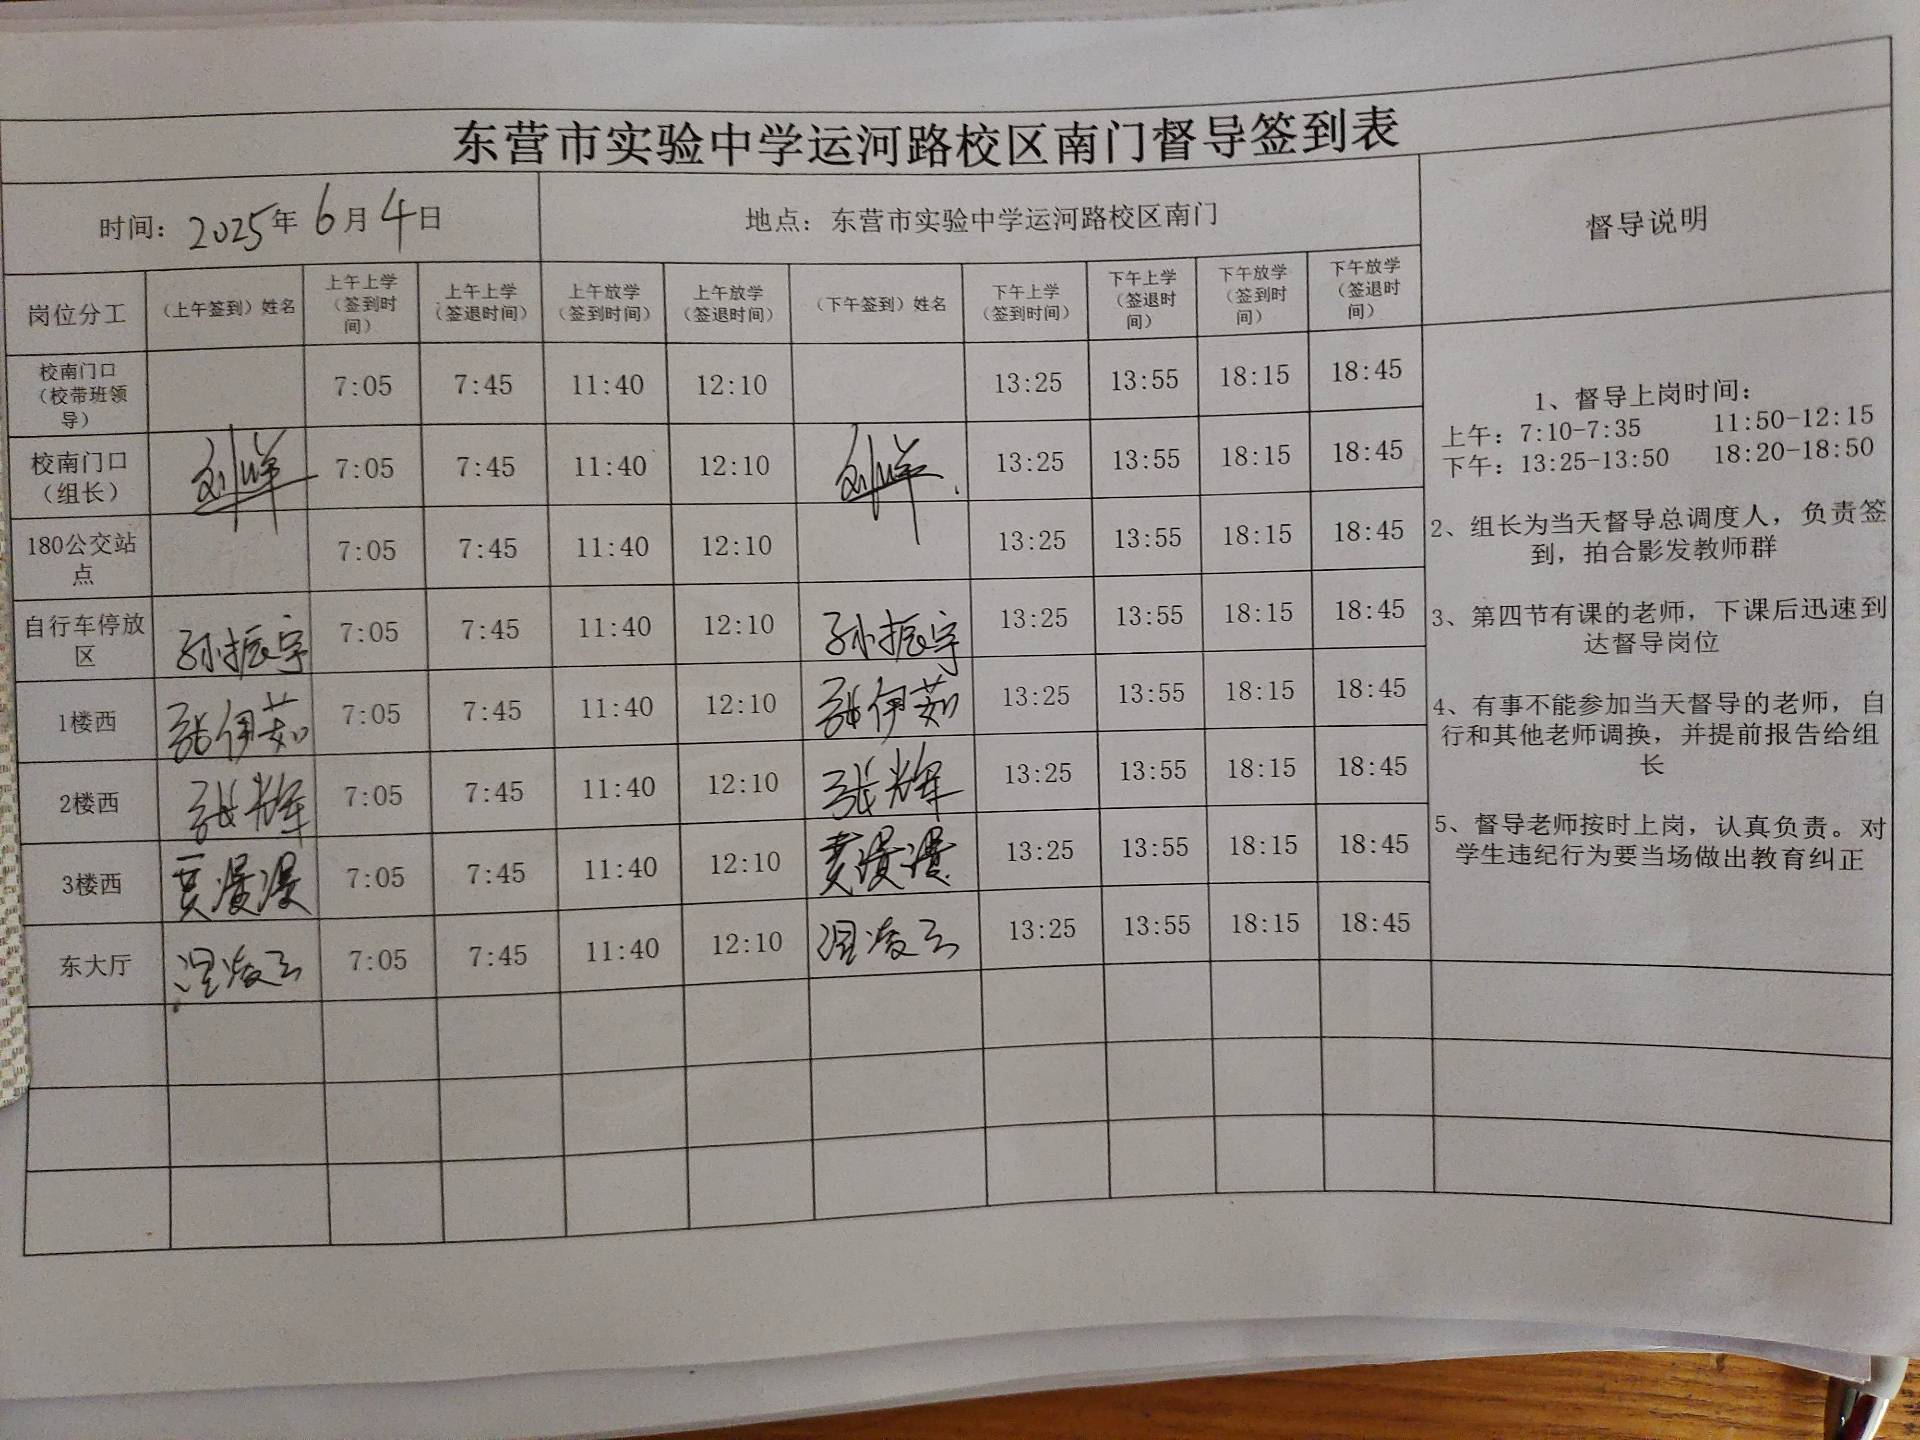 东营市实验中学运河路校区南门督导签到表
时间：2025年6月4日 地点：东营市实验中学运河路校区南门 督导说明
岗位分工 （上午签到）姓名 上午上学（签到时间） 上午上学（签退时间） 上午放学（签到时间） 上午放学（签退时间） （下午签到）姓名 下午上学（签到时间） 下午上学（签退时间） 下午放学（签到时间） 下午放学（签退时间）
校南门口（校带班领导） 7:05 7:45 11:40 12:10 13:25 13:55 18:15 18:45
校南门口（组长） 刘洋 7:05 7:45 11:40 12:10 刘洋 13:25 13:55 18:15 18:45
180公交站点 7:05 7:45 11:40 12:10 13:25 13:55 18:15 18:45
自行车停放区 孙振宇 7:05 7:45 11:40 12:10 孙振宇 13:25 13:55 18:15 18:45
1楼西 张伊茹 7:05 7:45 11:40 12:10 张伊茹 13:25 13:55 18:15 18:45
2楼西 张辉 7:05 7:45 11:40 12:10 张辉 13:25 13:55 18:15 18:45
3楼西 7:05 7:45 11:40 12:10 13:25 13:55 18:15 18:45
东大厅 7:05 7:45 11:40 12:10 13:25 13:55 18:15 18:45
1、督导上岗时间：
上午：7:10-7:35 11:50-12:15
下午：13:25-13:50 18:20-18:50
2、组长为当天督导总调度人，负责签
到，拍合影发教师群
3、第四节有课的老师，下课后迅速到
达督导岗位
4、有事不能参加当天督导的老师，自
行和其他老师调换，并提前报告给组
长
5、督导老师按时上岗，认真负责。对
学生违纪行为要当场做出教育纠正